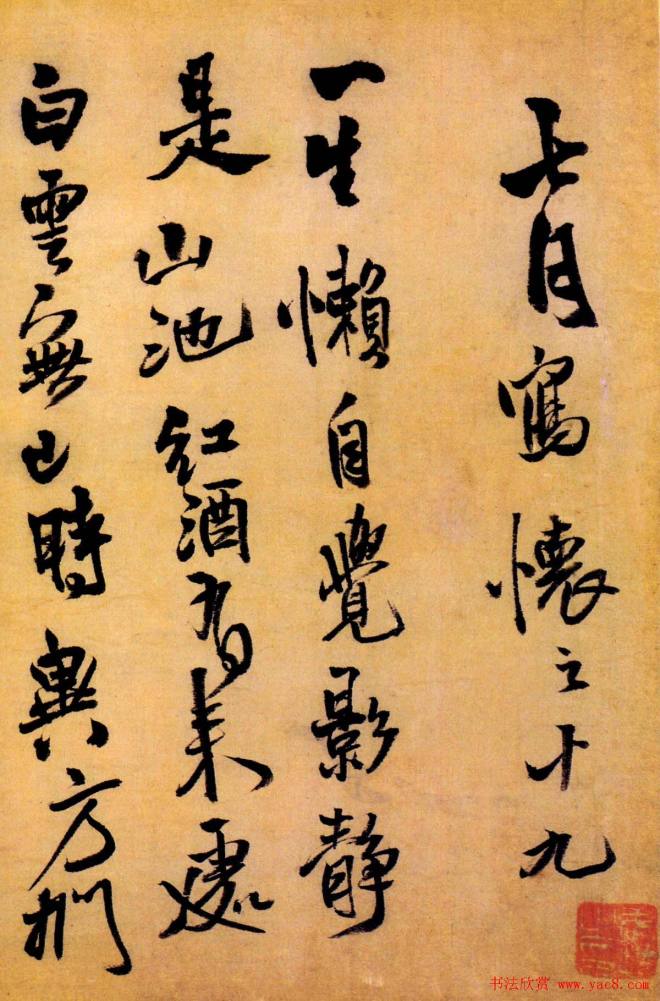 七月寫懷之十九
一生懶自覺影靜
是山池紅酒有來處
白雲無已時興方捫
书法欣赏 www.yac8.com